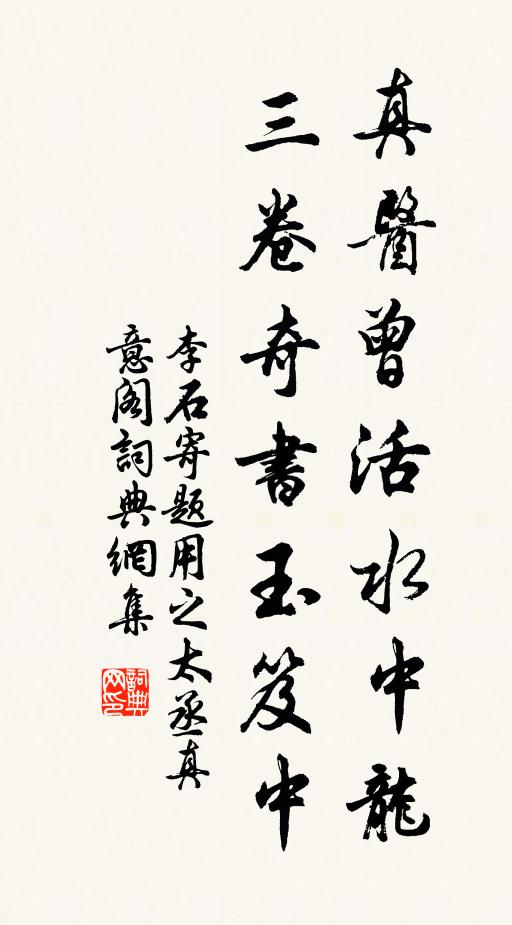 真醫曾活水中龍
三卷奇書玉笈中
李石寄題用之太丞真
意閣詞典網集
詞典
网印